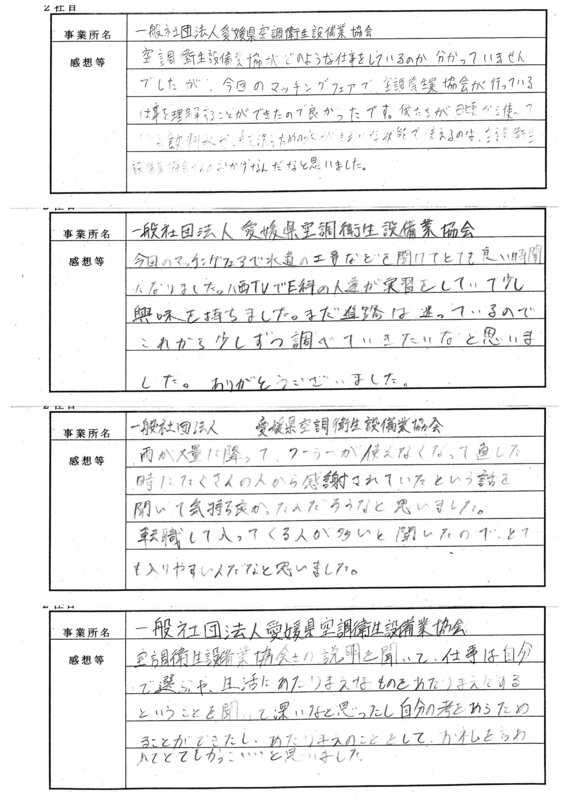 2社目
事業所名 一般社団法人愛媛県空調衛生設備業協会
感想等 空調衛生設備業協がどのような仕事をしているのか分かっていません
でしたが、今回のマッチングフェアで空調衛生業協会が行っている
仕事を理解することができたので良かったです。僕たちが日頃から使って
いる飲料水や、手を洗うための水がきれいな状態で使えるのは、空調衛生
設備業協会さんのおかげなんだなと思いました。
2社目
事業所名 一般社団法人 愛媛県空調衛生設備業協会
感想等 今回のマッチングフェアで水道の工事などを聞けてとても良い時間
になりました。八西TVでE科の人達が実習をしていて少し
興味を持ちました。まだ進路は迷っているので
これから少しずつ調べていきたいなと思いま
した。ありがとうございました。
2社目
事業所名 一般社団法人 愛媛県空調衛生設備業協会
感想等 雨が大量に降って、クーラーが使えなくなって直した
時にたくさんの人から感謝されていたという話を
聞いて気持ち良かったんだろうなと思いました。
転職して入ってくる人が多いと聞いたので、とて
も入りやすいんだなと思いました。
2社目
事業所名 一般社団法人愛媛県空調衛生設備業協会
感想等 空調衛生設備業協会さの説明を聞いて、仕事は自分
で選ぶや、生活にあたりまえなものをあたりまえにする
ということを聞いて深いなと思ったし自分の考をあらため
ることができたし、あたりまえのことをして、お礼を言わ
れてとてもかっこいいと思いました。